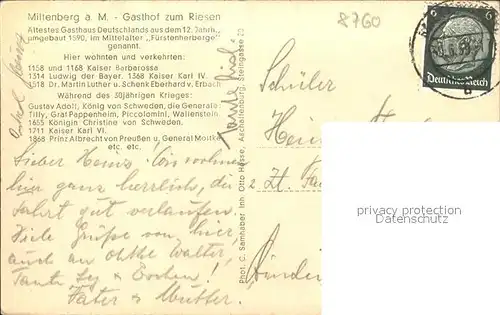 Miltenberg a. M. - Gasthof zum Riesen
Ältestes Gasthaus Deutschlands aus dem 12. Jahrh.,
umgebaut 1590, im Mittelalter „Fürstenherberge"
genannt.
Hier wohnten und verkehrten:
1158 und 1168 Kaiser Barbarossa
1314 Ludwig der Bayer. 1368 Kaiser Karl IV.
1518 Dr. Martin Luther u. Schenk Eberhard v. Erbach
Während des 30jährigen Krieges:
Gustav Adolf, König von Schweden, die Generäle
Tilly, Graf Pappenheim, Piccolomini, Wallenstein.
1655 Königin Christine von Schweden.
1711 Kaiser Karl VI.
1868 Prinz Albrecht von Preußen u. General Moltke
etc. etc.
Lieber Heinz! Wir wohnen
hier ganz herrlich, die
Fahrt gut verlaufen.
Viele Grüße von hier,
auch an Walter,
Tante &
Vater & Mutter.
Onkel
Tante
Phot. C. Samhaber Inh. Otto Hesse, Aschaffenburg, Steingasse 23
8760
6 6
Deutsches Reich
b
Schüler
Hein
z. Zt.
privacy protection
Datenschutz